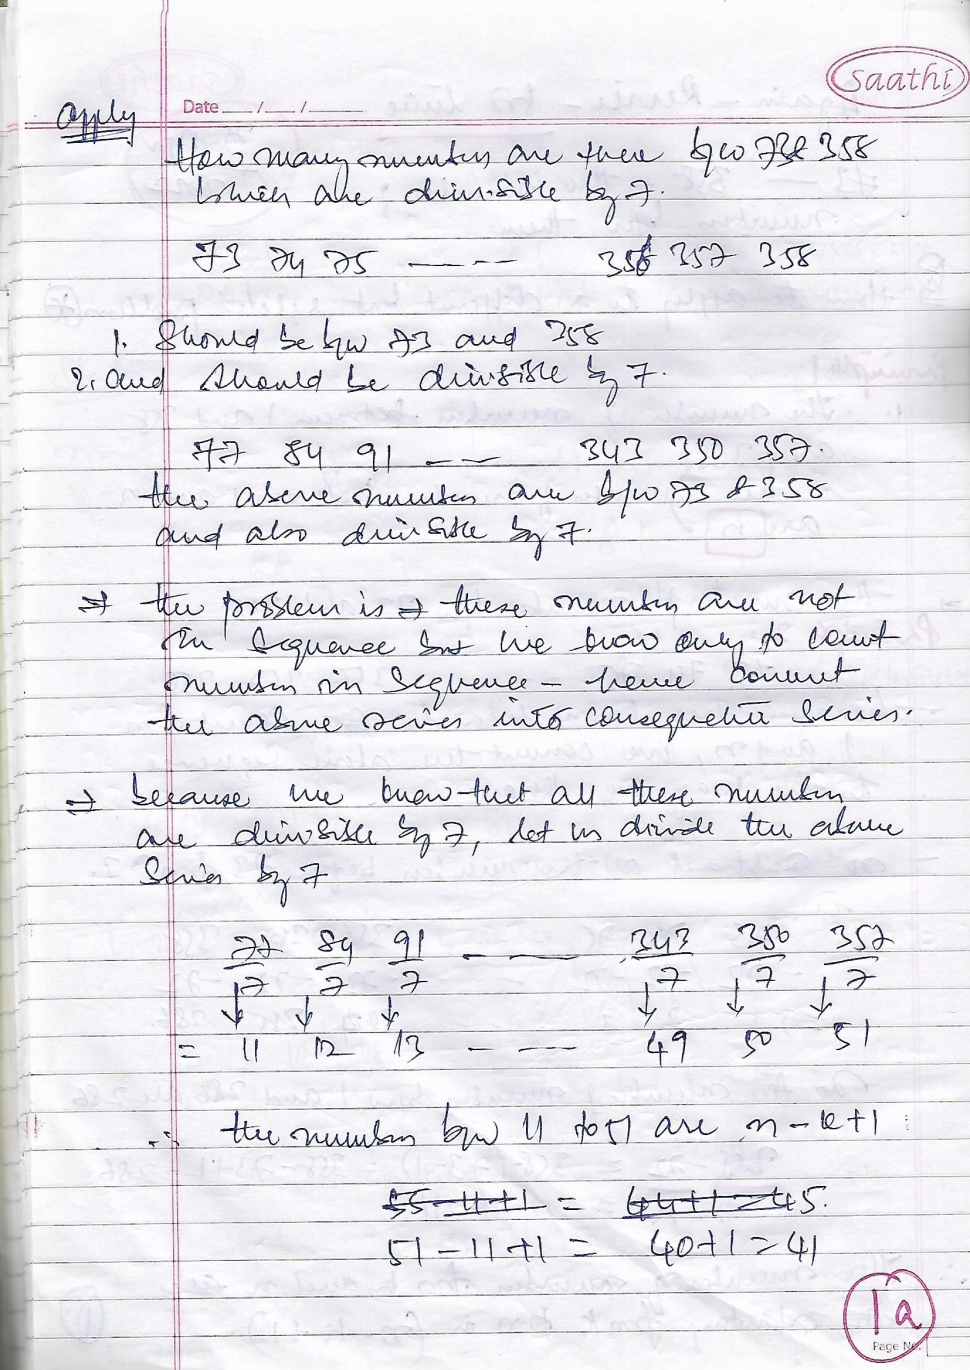 Saathi
apply
Date __/__/__
How many numbers are there b/w 73 & 358
which are divisible by 7.
73 74 75 ----- 356 357 358
1. Should be b/w 73 and 358
2. and should be divisible by 7.
77 84 91 ---- 343 350 357.
the above numbers are b/w 73 & 358
and also divisible by 7.
⇒ the problem is → these numbers are not
in sequence but we know only to count
numbers in sequence - hence convert
the above series into consequetive series.
⇒ because we know that all these numbers
are divisible by 7, let us divide the above
series by 7
77/7 84/7 91/7 ----- 343/7 350/7 357/7
↓ ↓ ↓ ↓ ↓ ↓
= 11 12 13 ----- 49 50 51
∴ the numbers b/w 11 to 51 are n-k+1
55-11+1 = 44+1 = 45.
51-11+1 = 40+1 = 41
1a
Page No.